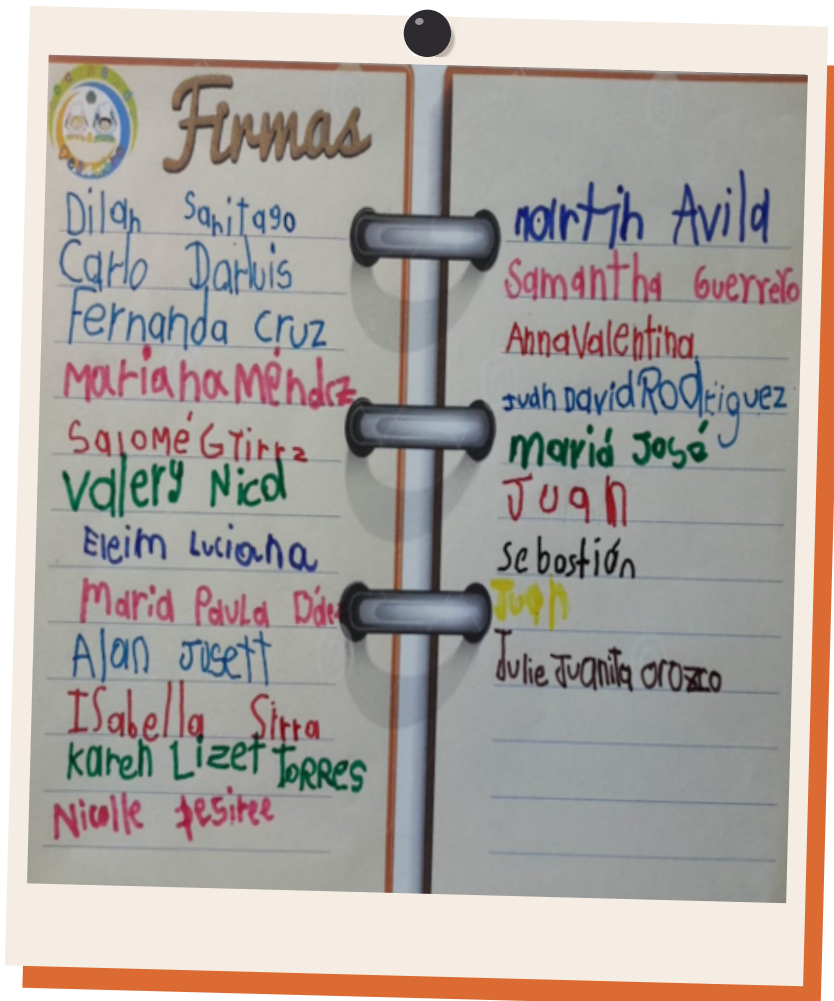 Firmas
Dilan Sanitago
Carlo Darluis
Fernanda Cruz
Mariana Méndez
Salomé GTirrz
Valery Nicol
Eleim Luciana
Maria Paula Díaz
Alan Jusett
ISabella Sirra
Karen Lizet TORRES
Nicolle Desiree
martin Avila
Samantha Guerrero
AnnaValentina
Juan David RODriguez
mariá José
Juan
Sebastión
Juan
Julie Juanita orozco